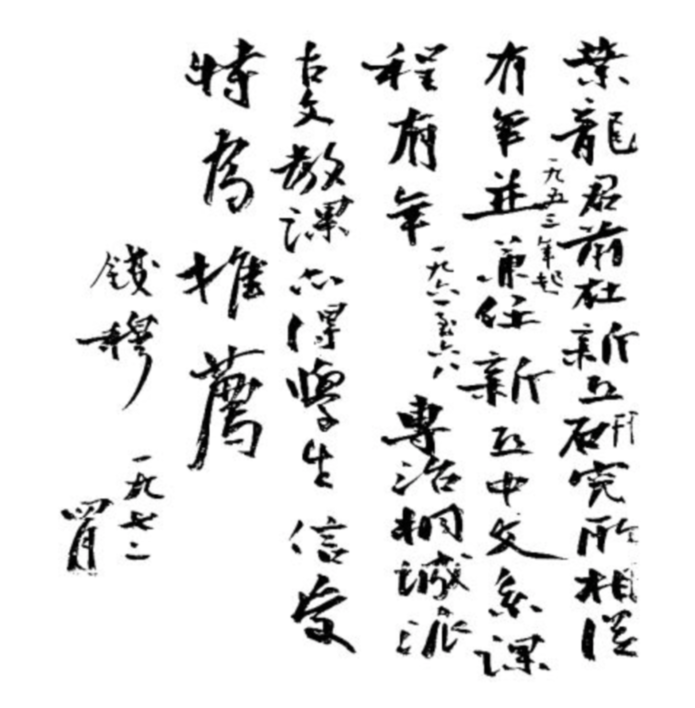 葉龍君前在新亞研究所相從
有年一九五三年起並兼任新亞中文系課
程有年一九六一至六八專治桐城派
古文教課心得學生信受
特為推薦
錢穆
一九七二
四月